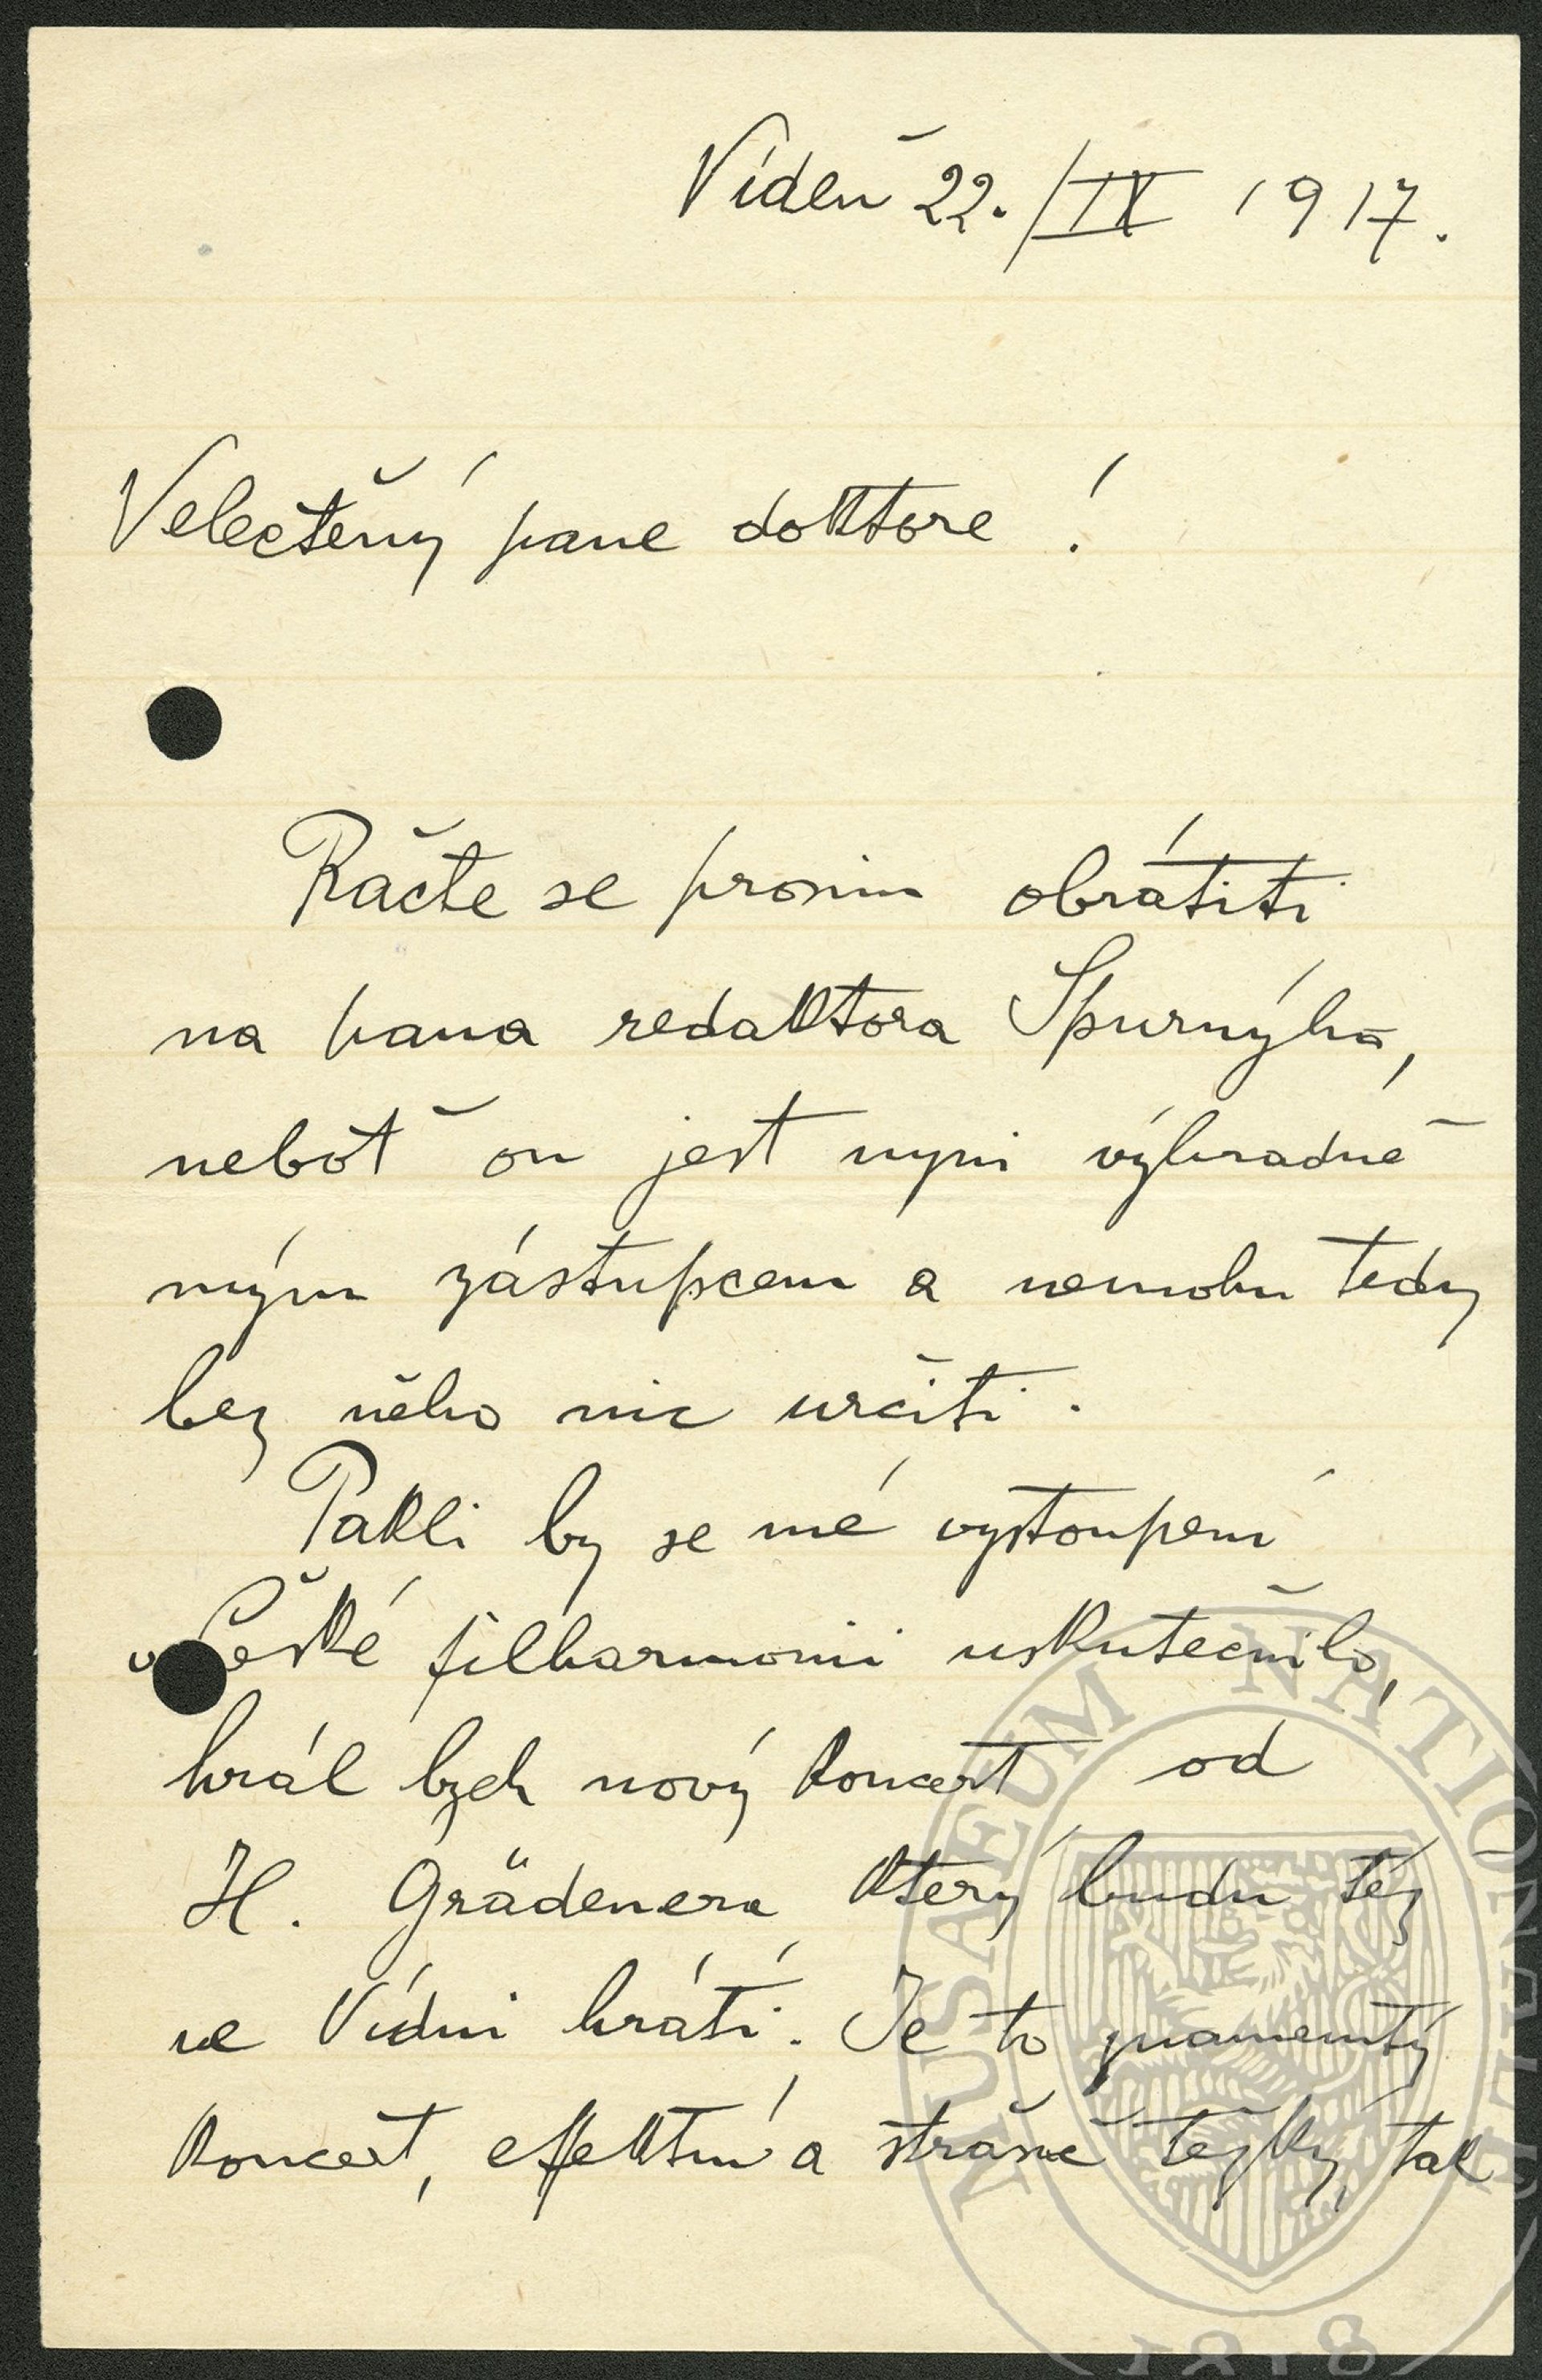 Vídeň 22./IX 1917.
Velectěný pane doktore!
Račte se prosím obrátiti
na pana redaktora Spurnýho,
neboť on jest nyni výhradně
mým zástupcem a nemohu tedy
bez něho nic určiti.
Pakli by se mé vystoupení
v České filharmonii uskutečnilo,
hrál bych nový koncert od
H. Grädenera který budu též
ve Vídni hráti. Je to znamenitý
koncert, efektní a strašně těžký, tak
MUSAEUM NATIONALE
1818